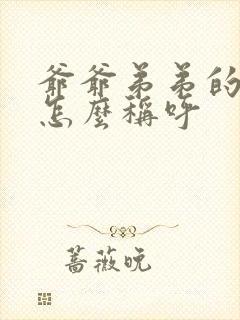 爺爺弟弟的
怎麼稱呼
薔薇晚